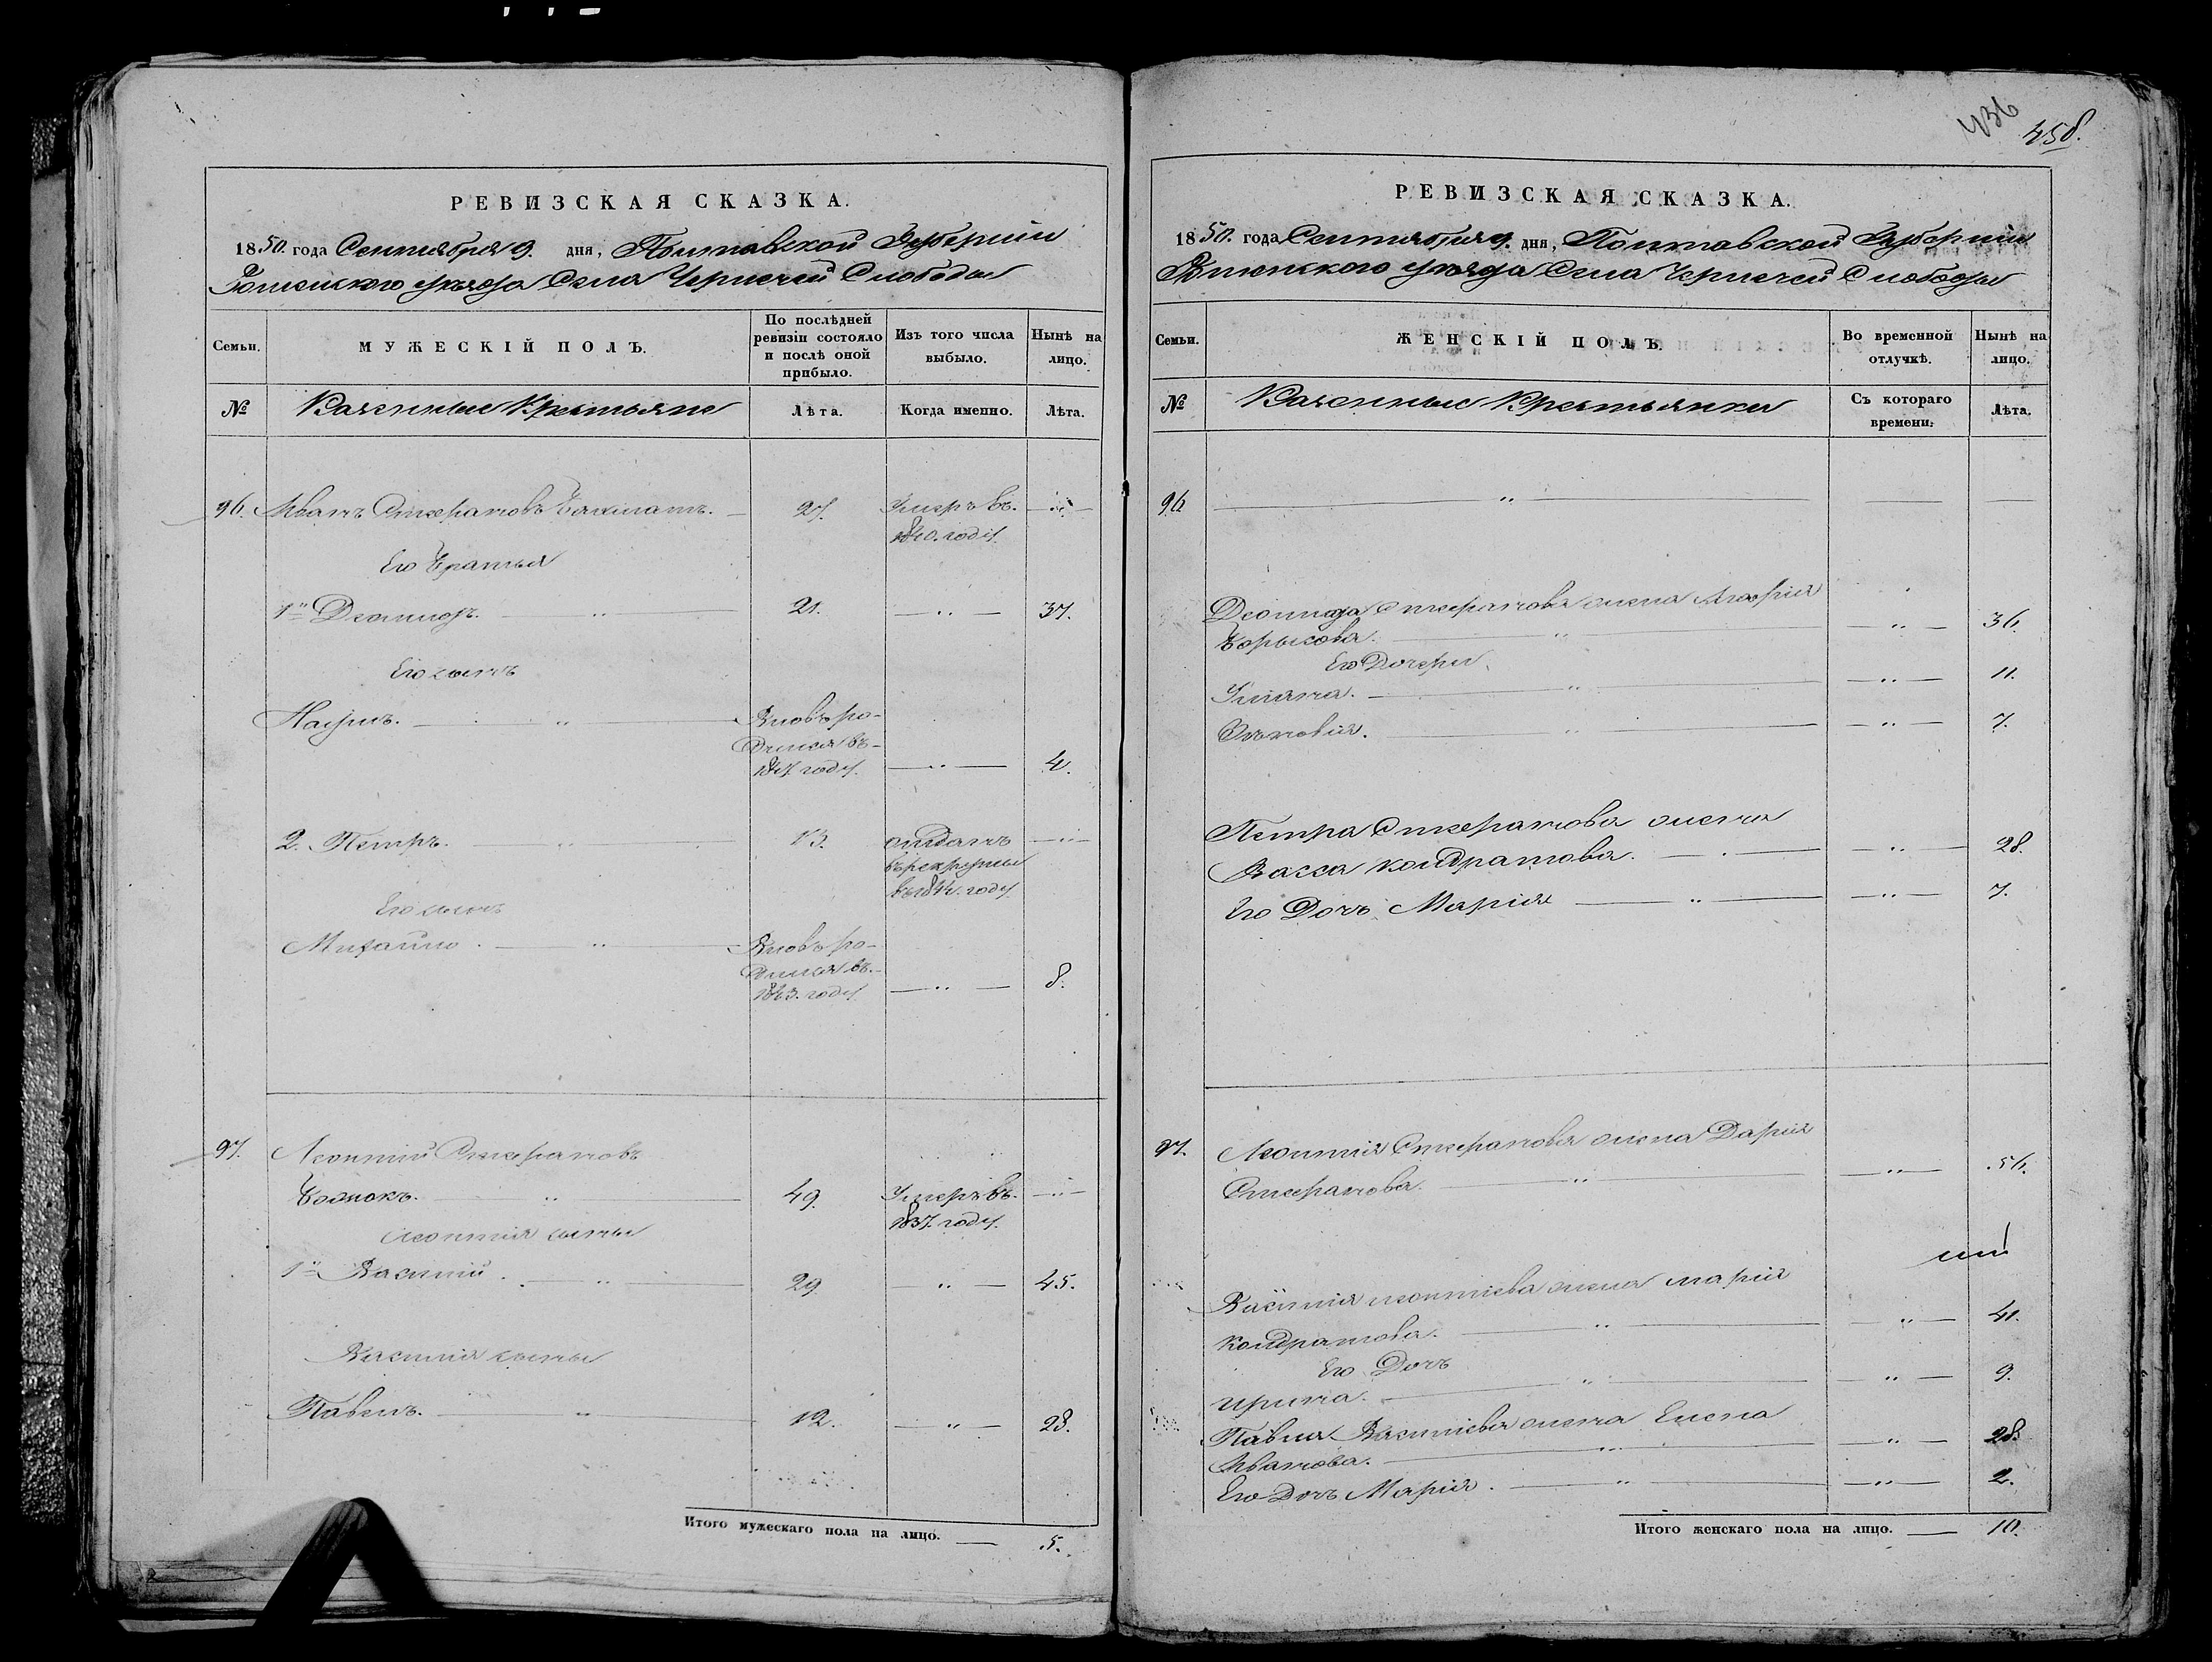 РЕВИЗСКАЯ СКАЗКА.
1850. года Сентября 9. дня, Полтавской Губернии
Роменского уезда Села Чернечей Слободы
Семьи.
МУЖЕСКІЙ ПОЛЪ.
По послѣдней ревизіи состояло и послѣ оной прибыло.
Изъ того числа выбыло.
Нынѣ на лицо.
№
Казенные Крестьяне
Лѣта.
Когда именно.
Лѣта.
96. Иванъ Стефановъ 27. Умеръ въ
1840. году
Его Братья
1й Леонидъ. 21. 37.
Его сынъ
Наумъ. Вновь ро-
дился въ
1847 году. 4.
2. Петръ. 13. отданъ
въ рекруты
въ 1844. году
Его сынъ
Михайло. Вновь ро-
дился въ
1843. году 8.
97. Леонтій Стефановъ
49. Умеръ въ
1837. году.
Леонтія сыны
1й Василій. 29 45.
Василія сыны
Павелъ. 12. 28.
Итого мужескаго пола на лицо. 5.
436
458.
РЕВИЗСКАЯ СКАЗКА.
1850. года Сентября 9. дня, Полтавской Губерніи
Роменского уезда Села Чернечей Слободы
Семьи.
ЖЕНСКІЙ ПОЛЪ.
Во временной отлучкѣ.
Нынѣ на лицо.
№
Казенные Крестьянки
Съ котораго времени.
Лѣта.
96
Леонида Стефанова жена Агафія
Борисова. 36.
Его Дочери
Уляна. 11.
7.
Петра Стефанова жена
Васса Кондратова. 28.
Его Дочь Марія 7.
97. Леонтія Стефанова жена Дарія
Стефанова. 56.
Василія Леонтіева жена Марія
Кондратова. 41.
Его Дочь
Ирина. 9.
Павла Васильева жена Елена
Иванова. 28.
Его Дочь Марія. 2.
Итого женскаго пола на лицо. 10.